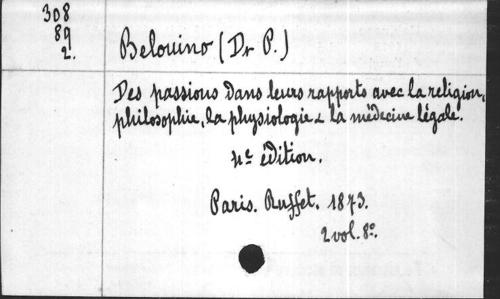 308
89
2.
Belouino (Dr P.)
Des passions dans leurs rapports avec la religion,
philosophie, la physiologie & la médecine légale.
4e édition.
Paris. Ruffet. 1873.
2 vol. 8o.